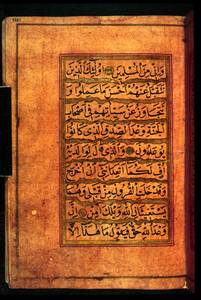 وَإِنِّي مِنَ الْمُسْلِمِينَ أُولَئِكَ الَّذِينَ
نَتَقَبَّلُ عَنْهُمْ أَحْسَنَ مَا عَمِلُوا وَ
نَتَجَاوَزُ عَنْ سَيِّئَاتِهِمْ فِي أَصْحَابِ
الْجَنَّةِ وَعْدَ الصِّدْقِ الَّذِي كَانُوا
يُوعَدُونَ وَالَّذِي قَالَ لِوَالِدَيْهِ
أُفٍّ لَكُمَا أَتَعِدَانِنِي أَنْ أُخْرَجَ
وَقَدْ خَلَتِ الْقُرُونُ مِنْ قَبْلِي وَهُمَا
يَسْتَغِيثَانِ اللَّهَ وَيْلَكَ آمِنْ إِنَّ
وَعْدَ اللَّهِ حَقٌّ فَيَقُولُ مَا هَذَا إِلَّا